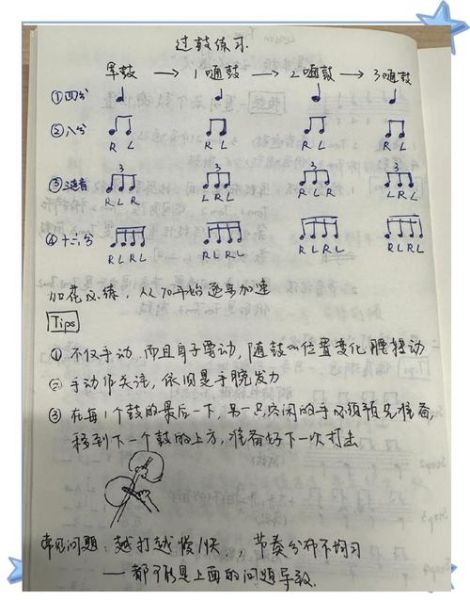 过鼓练习
军鼓 → 1嗵鼓 → 2嗵鼓 → 3嗵鼓
①四分
②八分
R L R L R L R L
③连音 3 3 3 3
R L R L R L R L R L R L
④十六分
R L R L R L R L R L R L R L R L
加花必练，从70开始逐渐加速
Tips
①不仅手动，而且身子需动，随鼓的位置变化腰扭动
②手动作关注，依旧是手腕发力
③在每1个鼓的最后一下，另一只空闲的手必须预先准备，
移到下一个鼓的上方，准备好下一次打击
常见问题：越打越慢/快，节奏分布不均匀
——都可能是上面的问题导致.